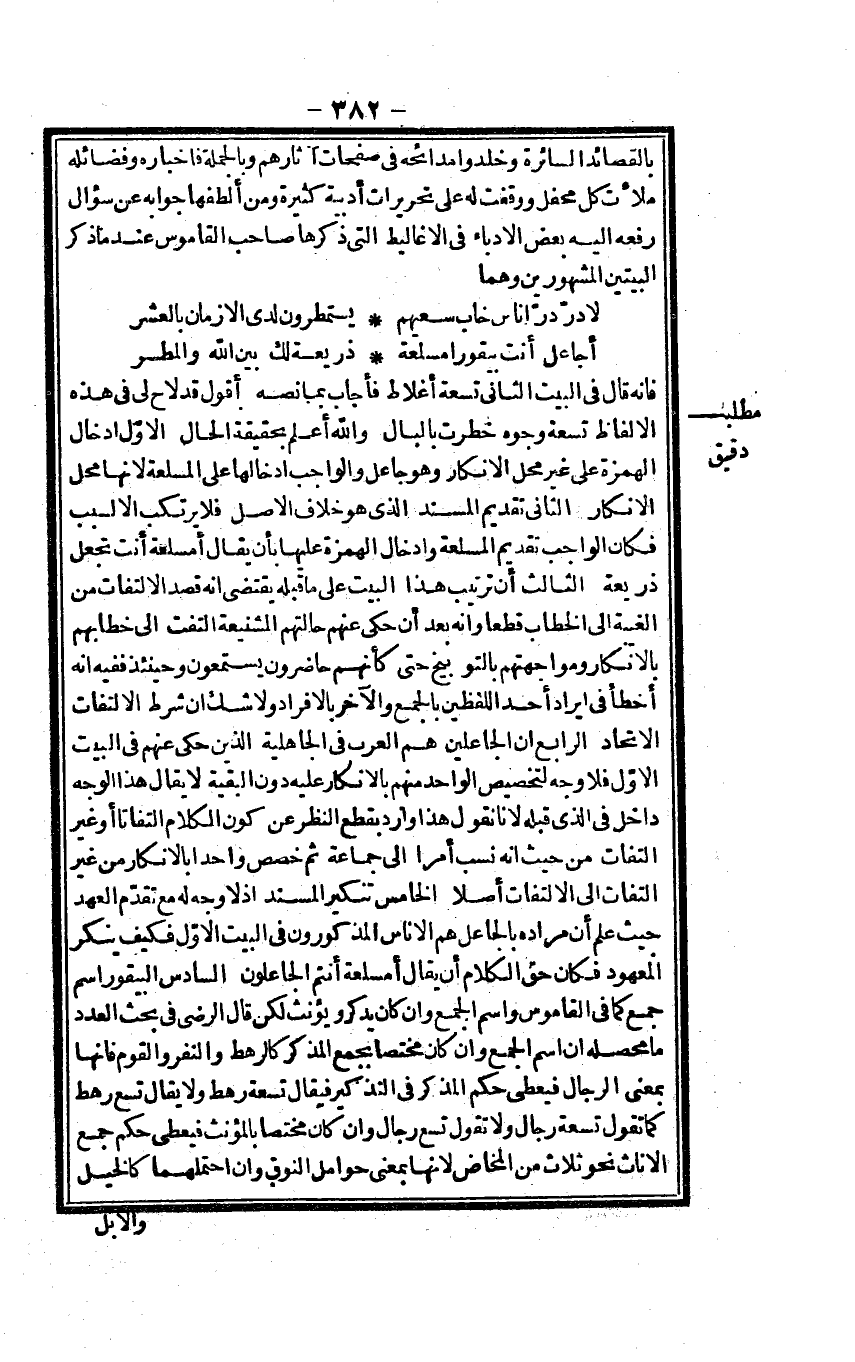 - ٣٨٢ -
بالقصائد السائرة وخلدوا مدائحه فى صفحات آثارهم وبالجملة فاخباره وفضائله
ملأت كل محفل ووقفت له على تحريرات أدبية كثيرة ومن ألطفها جوابه عن سؤال
رفعه اليه بعض الادباء فى الاغاليط التى ذكرها صاحب القاموس عند ماذكر
البيتين المشهورين وهما
لا درّ درّ اناس خاب سعيهم * يستمطرون لدى الازمان بالعشر
أجاعل أنت بيقورا مسلعة * ذريعة لك بين الله والمطر
فانه قال فى البيت الثانى تسعة أغلاط فأجاب بمانصه أقول قد لاح لى فى هذه
مطلب
الالفاظ تسعة وجوه خطرت بالبال والله أعلم بحقيقة الحال الاوّل ادخال
دقيق
الهمزة على غير محل الانكار وهو جاعل والواجب ادخالها على المسلعة لانها محل
الانكار الثانى تقديم المسند الذى هو خلاف الاصل فلا يرتكب الا لسبب
فكان الواجب تقديم المسلعة وادخال الهمزة عليها بأن يقال أمسلعة أنت تجعل
ذريعة الثالث أن ترتيب هذا البيت على ماقبله يقتضى انه قصد الالتفات من
الغيبة الى الخطاب قطعا وانه بعد أن حكى عنهم حالتهم الشنيعة التفت الى خطابهم
بالانكار ومواجهتهم بالتوبيخ حتى كأنهم حاضرون يستمعون وحينئذ ففيه انه
أخطأ فى ايراد أحد اللفظين بالجمع والآخر بالافراد ولا شك ان شرط الالتفات
الاتحاد الرابع ان الجاعلين هم العرب فى الجاهلية الذين حكى عنهم فى البيت
الاوّل فلا وجه لتخصيص الواحد منهم بالانكار عليه دون البقية لا يقال هذا الوجه
داخل فى الذى قبله لانا نقول هذا وارد بقطع النظر عن كون الكلام التفاتا أو غير
التفات من حيث انه نسب أمرا الى جماعة ثم خصص واحدا بالانكار من غير
التفات الى الالتفات أصلا الخامس تنكير المسند اذ لا وجه له مع تقدّم العهد
حيث علم أن مراده بالجاعل هم الاناس المذكورون فى البيت الاوّل فكيف ينكر
المعهود فكان حق الكلام أن يقال أمسلعة أنتم الجاعلون السادس البيقور اسم
جمع كما فى القاموس واسم الجمع وان كان يذكر ويؤنث لكن قال الرضى فى بحث العدد
ما محصله ان اسم الجمع وان كان مختصا بجمع المذكر كالرهط والنفر والقوم فانها
بمعنى الرجال فيعطى حكم المذكر فى التذكير فيقال تسعة رهط ولا يقال تسع رهط
كما تقول تسعة رجال ولا تقول تسع رجال وان كان مختصا بالمؤنث فيعطى حكم جمع
الاناث نحو ثلاث من المخاض لانها بمعنى حوامل النوق وان احتملهما كالخيل
والابل